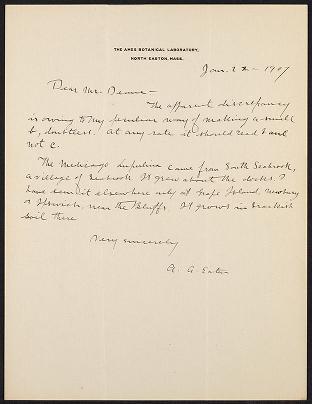 THE AMES BOTANICAL LABORATORY,
NORTH EASTON, MASS.
Jan. 22 - 1907
Dear Mr. Deane -
The apparent discrepancy
is owing to my peculiar way of making a small
b, doubtless. At any rate it should read b and
not c.
The Medicago lupulina came from South Seabrook,
a village of Seabrook. It grew about the docks. I
have seen it elsewhere only at Grape Island, Newbury
or Ipswich, near the Bluffs. It grows in brackish
soil there
Very sincerely
A. A. Eaton